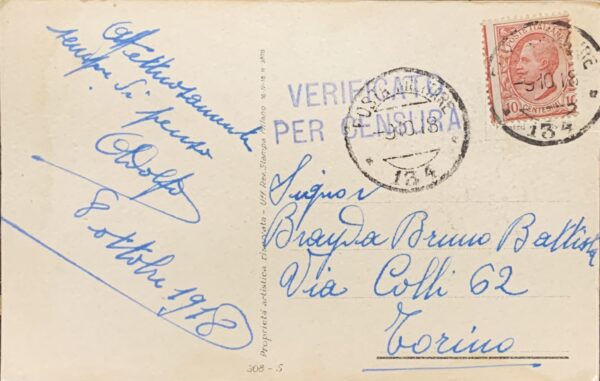 Affettuosamente
sempre Ti penso
Adolfo
8 ottobre 1918
Proprietà artistica riservata - Uff. Rev. Stampa Milano
308 - S
VERIFICATO
PER CENSURA
POSTA MILITARE
9.10.18
134
POSTE ITALIANE
10 CENTESIMI 10
9.10.18
134
Signor
Brayda Bruno Battista
Via Colli 62
Torino